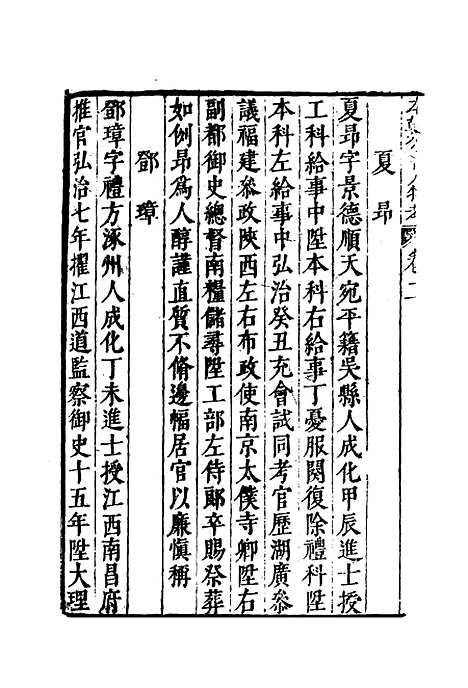 本朝分省人物考 卷二
夏昂
夏昻字景德順天宛平籍吳縣人成化甲辰進士授
工科給事中陞本科右給事丁憂服闋復除禮科陞
本科左給事中弘治癸丑充會試同考官歷湖廣叅
議福建叅政陝西左右布政使南京太僕寺卿陞右
副都御史總督南糧儲尋陞工部左侍郞卒賜祭葬
如例昻爲人醇謹直質不脩邊幅居官以廉愼稱
鄧璋
鄧璋字禮方涿州人成化丁未進士授江西南昌府
推官弘治七年擢江西道監察御史十五年陞大理